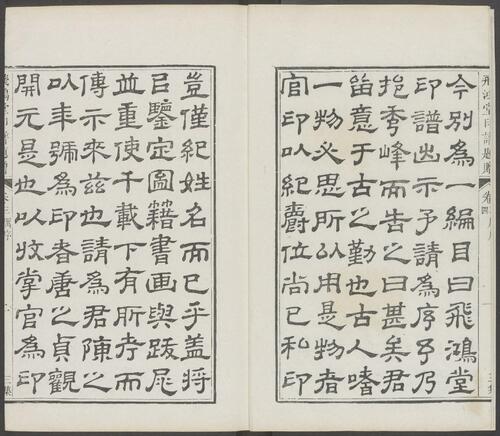 飛鴻堂印譜
三集
今別為一編目曰飛鴻堂
印譜出示予請為序予乃
挹秀峰而告之曰甚矣君
畱意于古之勤也古人嗜
一物必思所以用是物者
官印以紀爵位尚已私印
豈僅紀姓名而已乎盖將
㠯鑒定圖籍書画與跋尾
並重使千載下有所考而
傳示來兹也請為君陳之
以年號為印者唐之貞觀
開元是也以收掌官為印
三集